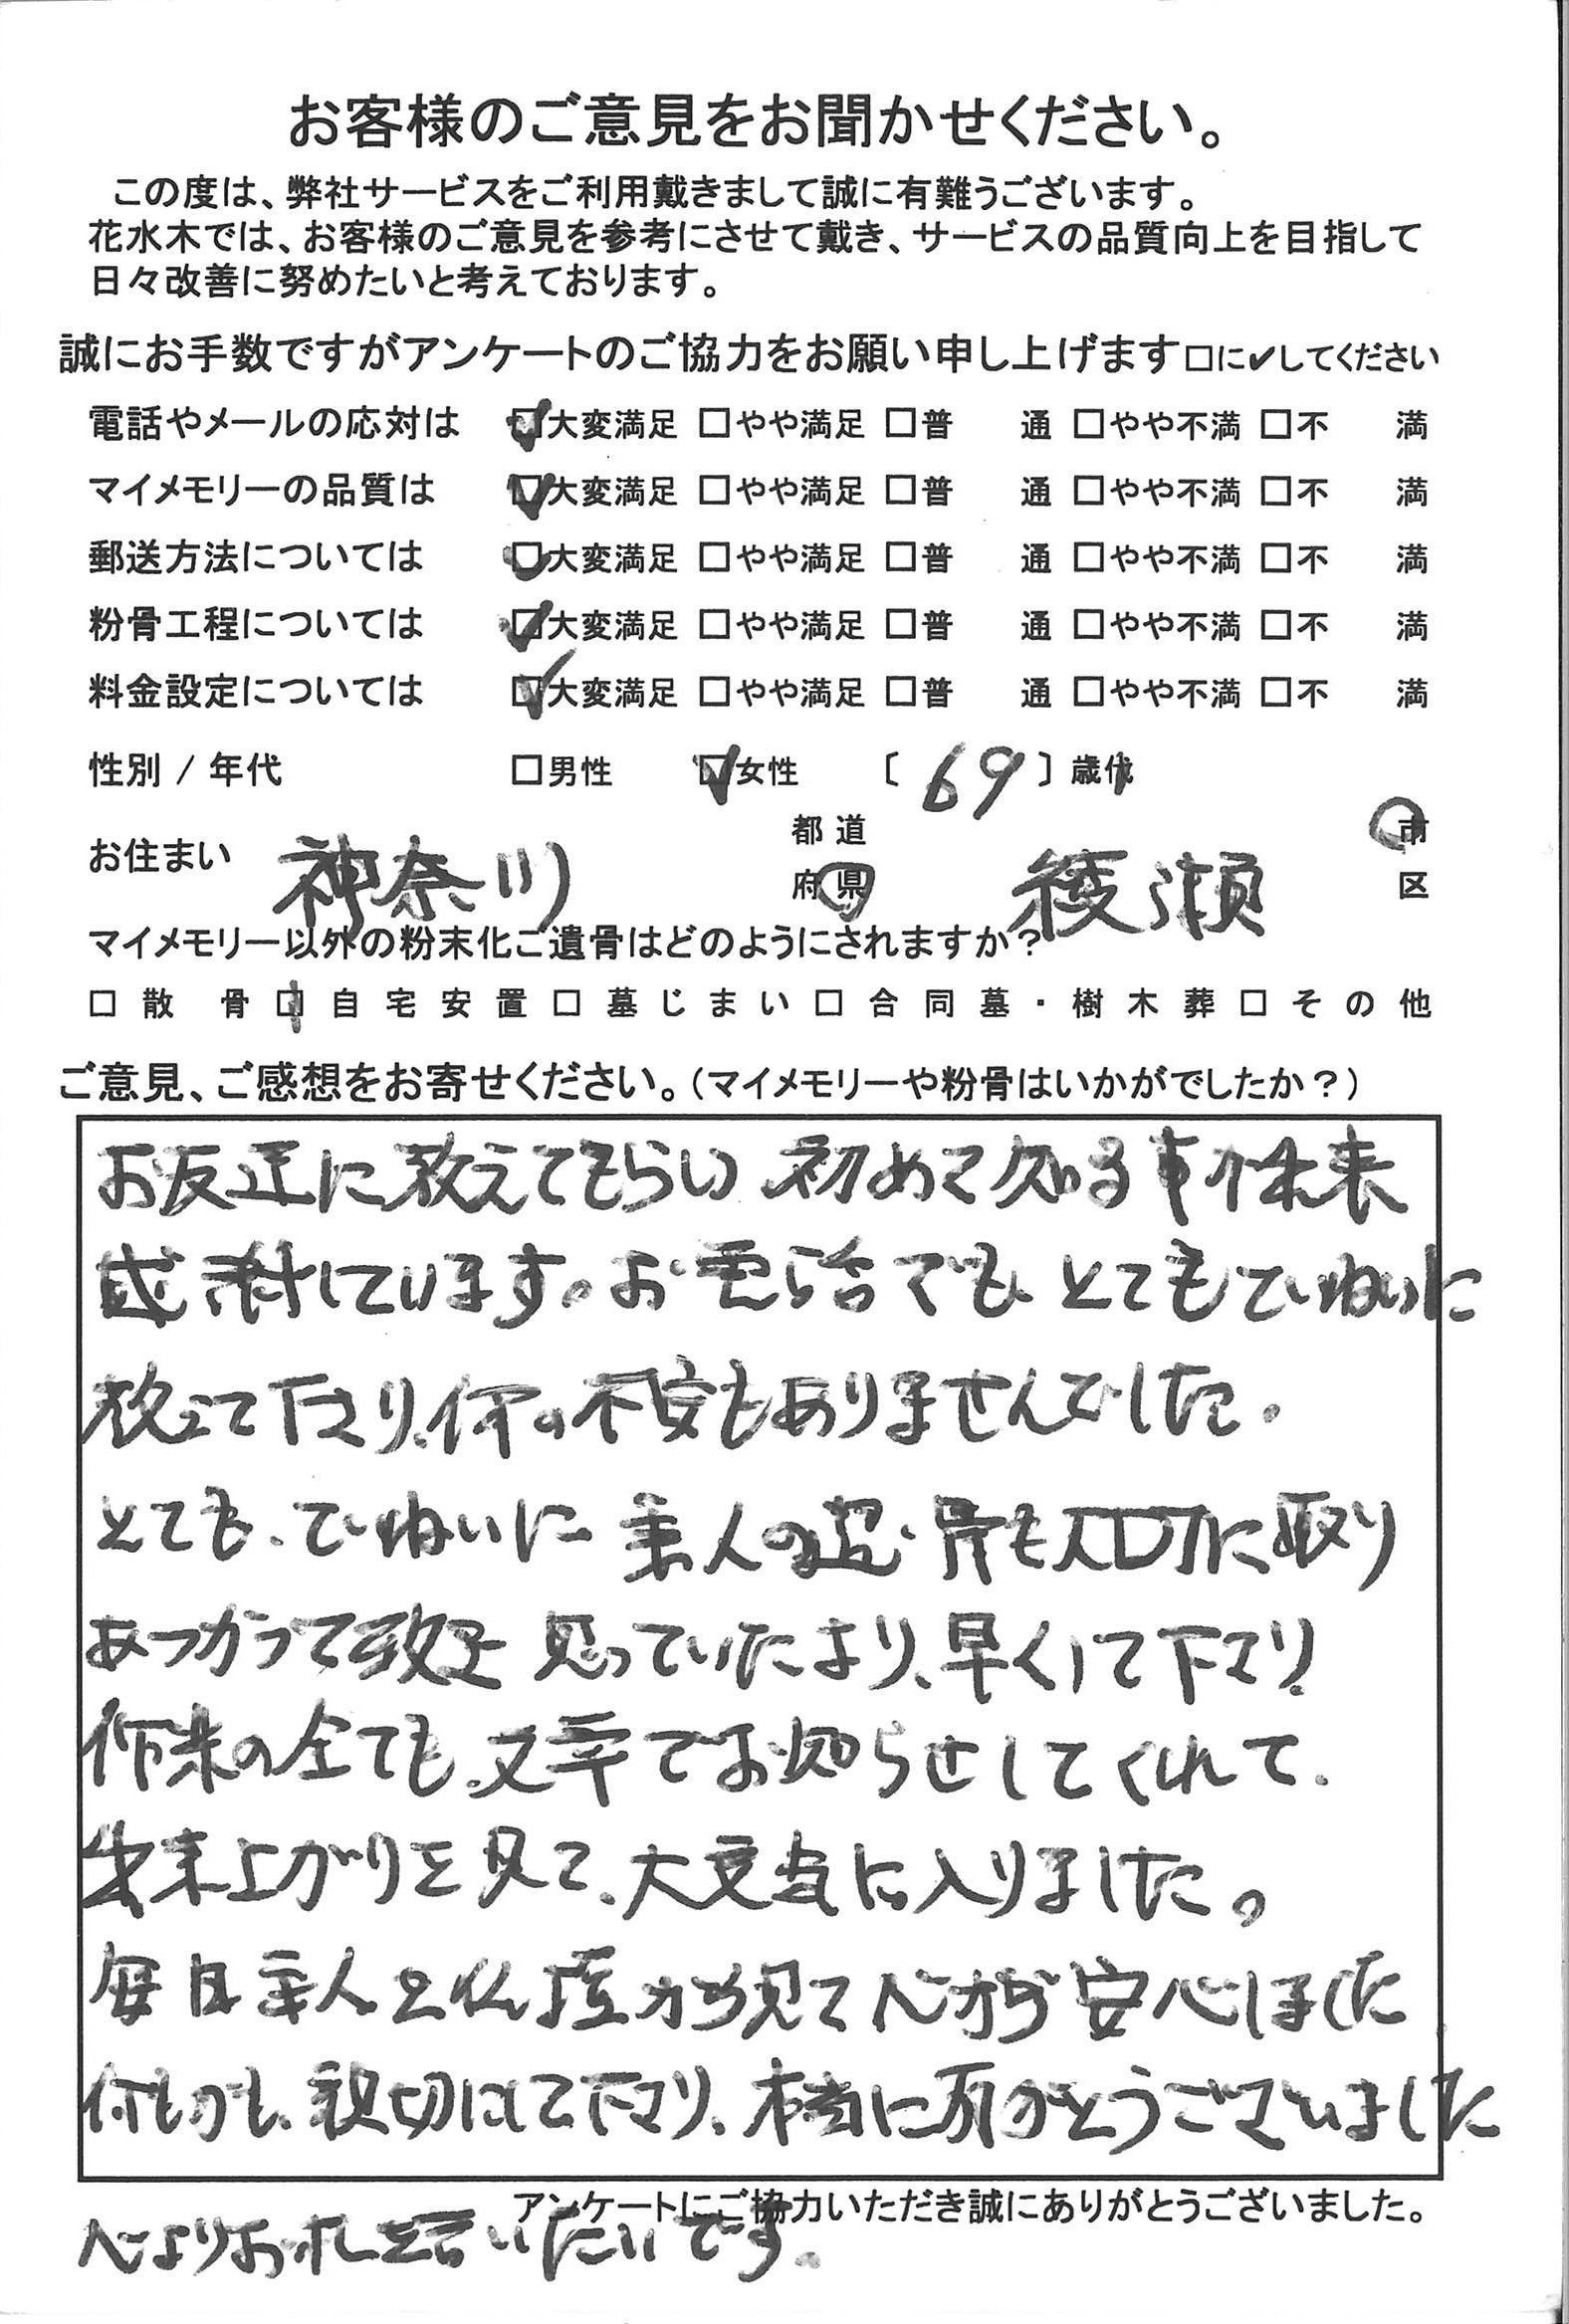 お客様のご意見をお聞かせください。
この度は、弊社サービスをご利用戴きまして誠に有難うございます。
花水木では、お客様のご意見を参考にさせて戴き、サービスの品質向上を目指して
日々改善に努めたいと考えております。
誠にお手数ですがアンケートのご協力をお願い申し上げます□に✔してください
電話やメールの応対は ☑大変満足 □やや満足 □普 通 □やや不満 □不 満
マイメモリーの品質は ☑大変満足 □やや満足 □普 通 □やや不満 □不 満
郵送方法については ☑大変満足 □やや満足 □普 通 □やや不満 □不 満
粉骨工程については ☑大変満足 □やや満足 □普 通 □やや不満 □不 満
料金設定については ☑大変満足 □やや満足 □普 通 □やや不満 □不 満
性別 / 年代 □男性 ☑女性 〔 69 〕歳代
お住まい 神奈川 都道府県 綾瀬 市区
マイメモリー以外の粉末化ご遺骨はどのようにされますか？
□散 骨 ☑自宅安置 □墓じまい □合同墓・樹木葬 □その他
ご意見、ご感想をお寄せください。（マイメモリーや粉骨はいかがでしたか？）
お友達に教えてもらい 初めて知る事が出来
感謝しています。お電話でも、とてもていねいに
教えて下さり、何の不安もありませんでした。
とても、ていねいに 主人の遺骨も大切に取り
あつかって 思っていたより、早くして下さり、
作業の全ても、文章でお知らせしてくれて、
出来上がりを見て、大変気に入りました。
毎日主人を仏壇から見て心から安心しました
何もかも、親切にして下さり、本当に有がとうございました
アンケートにご協力いただき誠にありがとうございました。
心よりお礼を言いたいです。